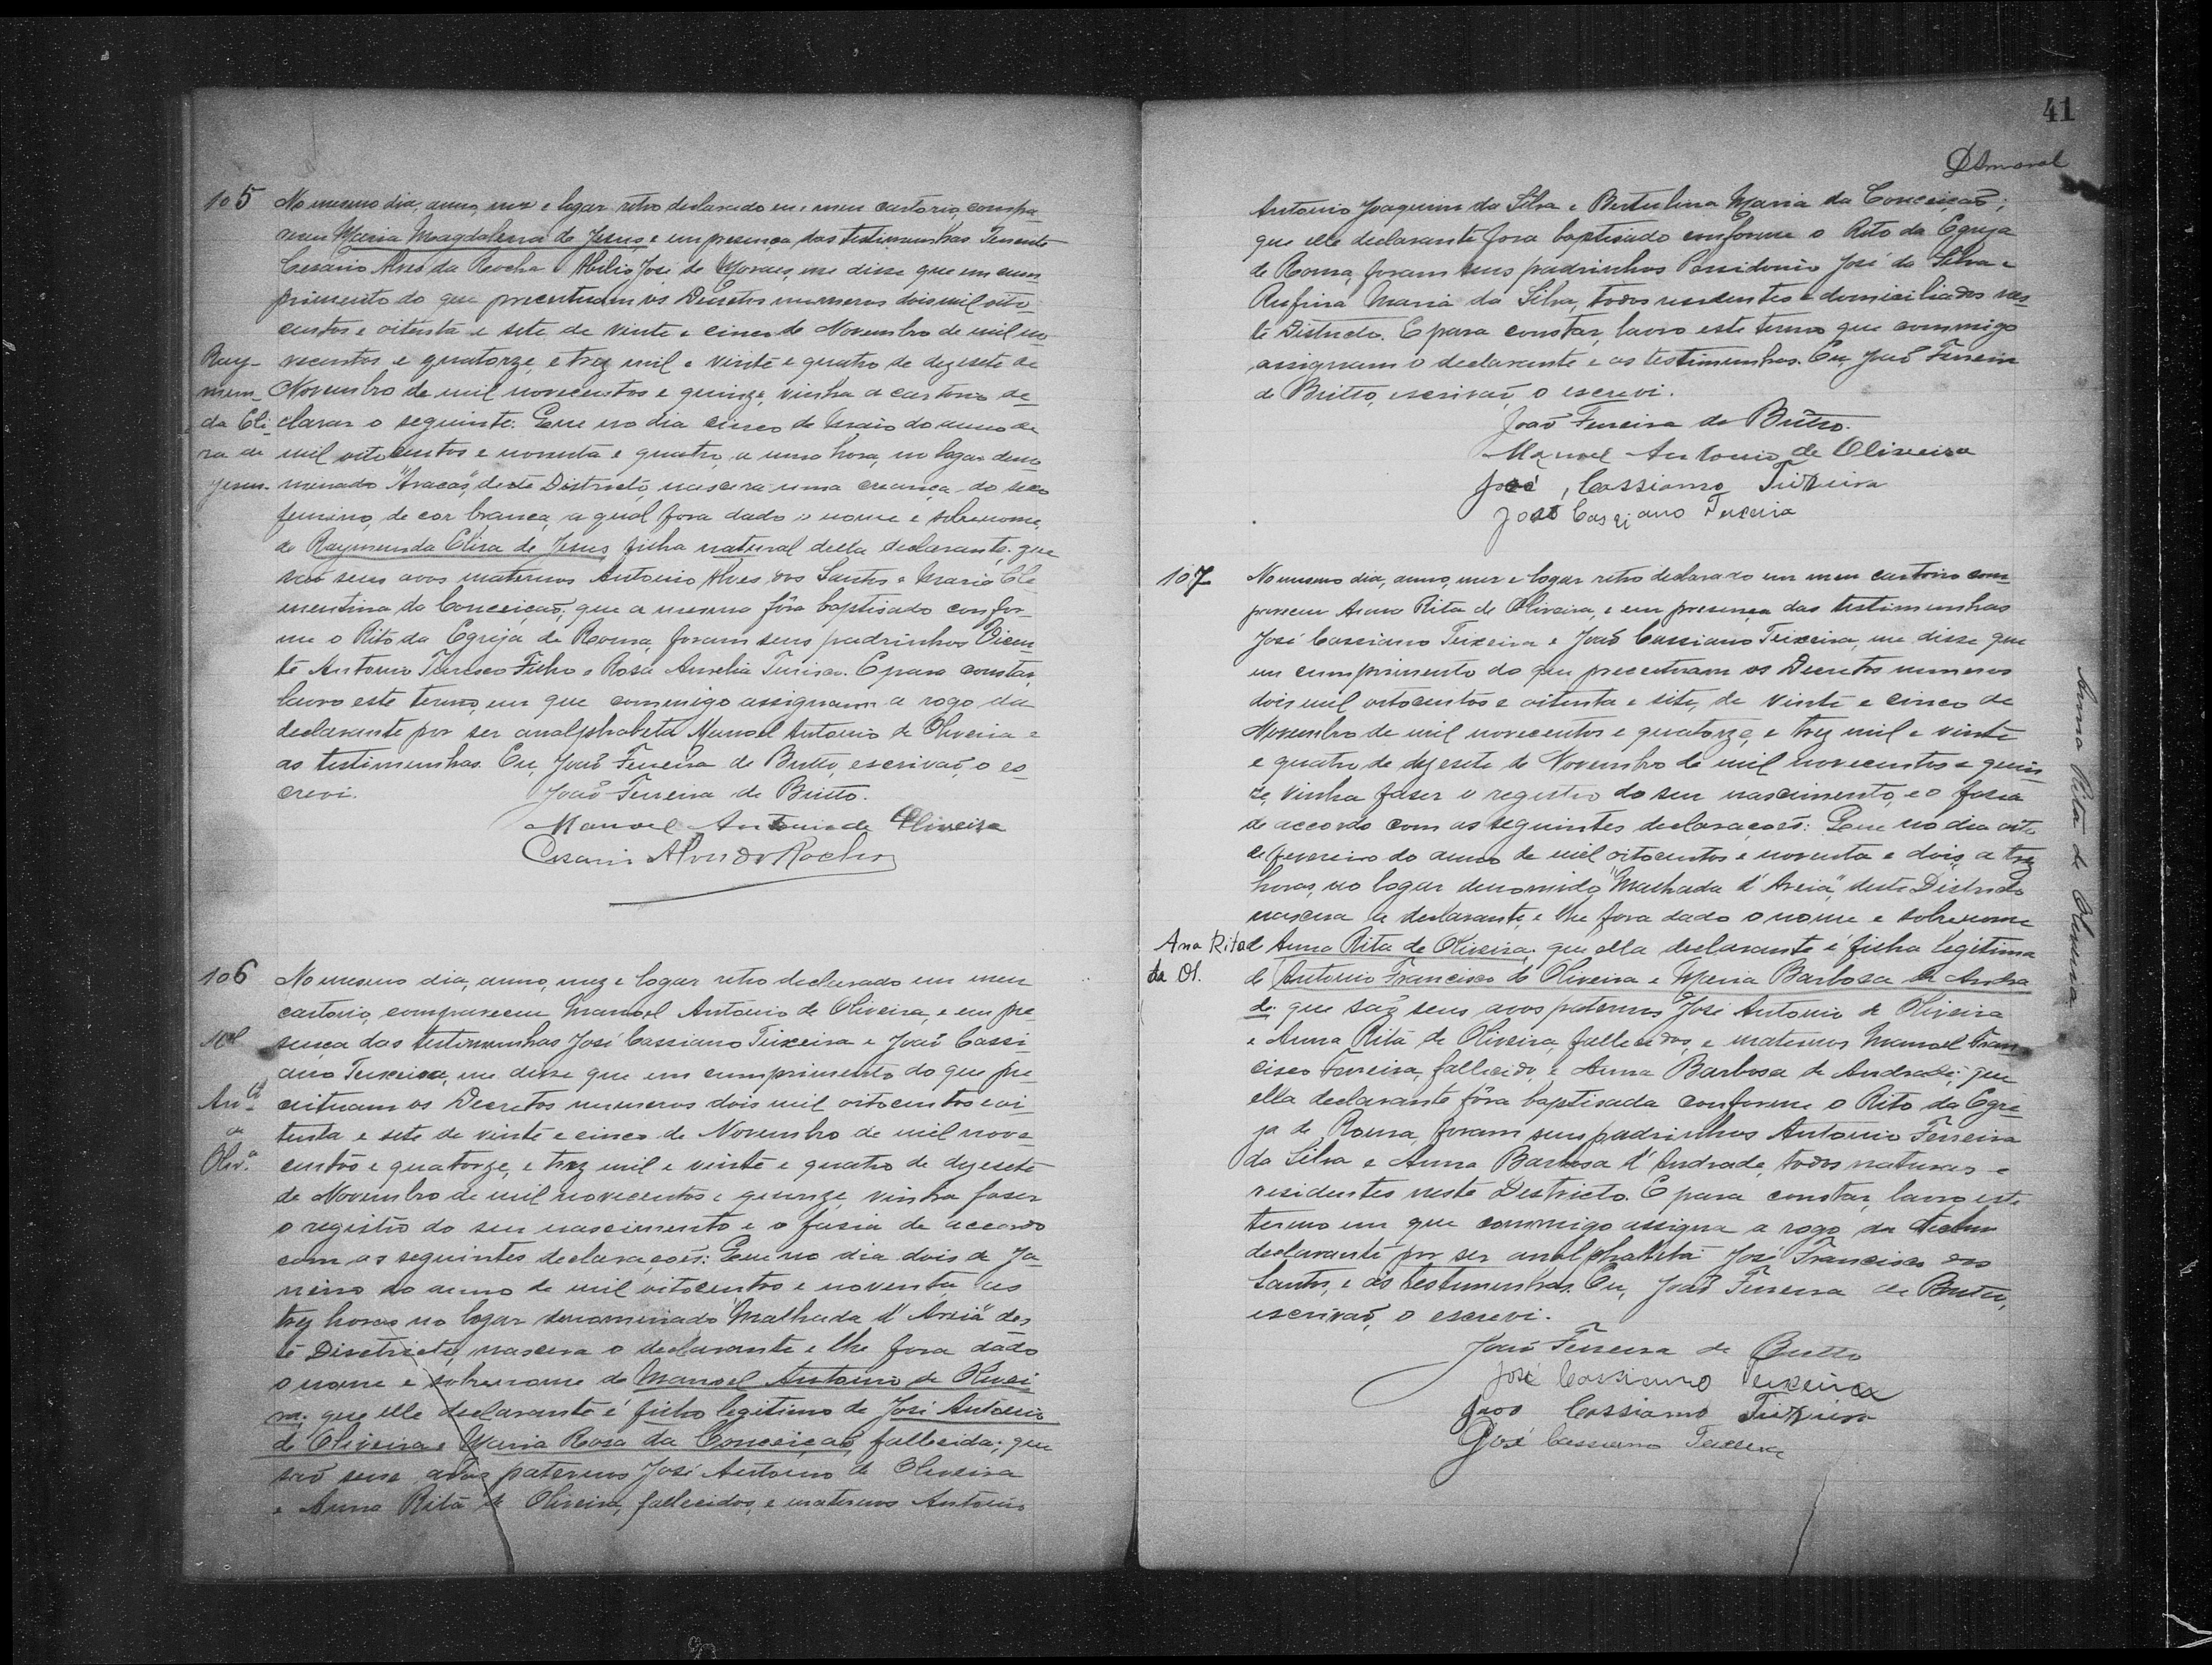 105 No mesmo dia, anno, mez e logar retro declarado em meu cartorio, compa-
receu Maria Magdalena de Jesus e em presença das testimunhas Tenente
Cesario Alves da Rocha e Abilio José de Moraes, me disse que em cum-
primento do que preceituam os Decretos numeros dois mil oito-
centos e oitenta e sete de vinte e cinco de Novembro de mil no-
Ray- vecentos e quatorze, e trez mil e vinte e quatro de dezesete de
mun- Novembro de mil novecentos e quinze, vinha a cartorio de-
da Eli- clarar o seguinte: Que no dia cinco de Maio do anno de
ra de mil oitocentos e noventa e quatro, a uma hora, no logar deno-
Jesus. minado "Aracás", deste Districto, nascera uma creança do sexo
feminino, de cor branca, a qual fora dado o nome e sobrenome
de Raymunda Elisa de Jesus, filha natural della declarante; que
são seus avos maternos Antonio Alves dos Santos e Maria Cle-
mentina da Conceição; que a mesma fôra baptisado confor-
me o Rito da Egreja de Roma, foram seus padrinhos Vicen-
te Antonio Filho e Rosa Aurelia. E para constar,
lavro este termo, em que commigo assignam a rogo da
declarante por ser analphabeta Manoel Antonio de Oliveira e
as testimunhas. Eu, João Ferreira de Britto, escrivaõ, o es-
crevi. João Ferreira de Britto.
Manoel Antonio de Oliveira
Cesario Alves da Rocha
106 No mesmo dia, anno, mez e logar retro declarado em meu
cartorio, compareceu Manoel Antonio de Oliveira, e em pre-
Mel sença das testimunhas José Cassiano Teixeira e João Cassi-
ano Teixeira, me disse que em cumprimento do que pre-
Anto ceituam os Decretos numeros dois mil oitocentos e oi-
de tenta e sete de vinte e cinco de Novembro de mil nove-
Oliv.a centos e quatorze, e trez mil e vinte e quatro de dezesete
de Novembro de mil novecentos e quinze, vinha faser
o registro do seu nascimento e o fasia de accordo
com as seguintes declarações: Que no dia dois de Ja-
neiro do anno de mil oitocentos e noventa, as
trez horas no logar denominado "Malhada d'Areia" des-
te Districto, nascera o declarante e lhe fora dado
o nome e sobrenome de Manoel Antonio de Olivei-
ra; que elle declarante é filho legitimo de José Antonio
de Oliveira e Maria Rosa da Conceição, fallecida; que
são seus avos paternos José Antonio de Oliveira
e Anna Rita de Oliveira, fallecidos, e maternos Antonio
41
DAmaral
Antonio Joaquim da Silva e Bertulina Maria da Conceição;
que elle declarante fora baptisado conforme o Rito da Egreja
de Roma, foram seus padrinhos Possidonio José da Silva e
Maria da Silva, todos residentes e domiciliados nes-
te Districto. E para constar, lavro este termo que commigo
assignam o declarante e as testimunhas. Eu, João Ferreira
de Britto, escrivaõ, o escrevi.
João Ferreira de Britto.
Manoel Antonio de Oliveira
José Cassiano Teixeira
João Cassiano Teixeira
107 No mesmo dia, anno, mez e logar retro declarado em meu cartorio com-
pareceu Anna Rita de Oliveira, e em presença das testimunhas
José Cassiano Teixeira e João Cassiano Teixeira, me disse que
em cumprimento do que preceituam os Decretos numeros
dois mil oitocentos e oitenta e sete, de vinte e cinco de
Novembro de mil novecentos e quatorze, e trez mil e vinte
e quatro de dezesete de Novembro de mil novecentos e quin-
ze, vinha faser o registro do seu nascimento, e o fasia
de accordo com as seguintes declarações: Que no dia oito
de fevereiro do anno de mil oitocentos e noventa e dois, a trez
horas, no logar denomido "Malhada d'Areia", deste Districto
nascera a declarante, e lhe fora dado o nome e sobrenome
Ana Rita de Anna Rita de Oliveira; que ella declarante é filha legitima
da Ol. de Antonio Francisco de Oliveira e Maria Barbosa de Andra-
de; que são seus avos paternos José Antonio de Oliveira
e Anna Rita de Oliveira, fallecidos, e maternos Manoel Fran-
cisco Ferreira, fallecido, e Anna Barbosa de Andrade; que
ella declarante fôra baptisada conforme o Rito da Egre-
ja de Roma, foram seus padrinhos Antonio Ferreira
da Silva e Anna Barbosa d'Andrade, todos naturaes e
residentes neste Districto. E para constar, lavro este
termo em que commigo assigna a rogo da
declarante por ser analphabeta José Francisco dos
Santos, e as testimunhas. Eu, João Ferreira de Britto,
escrivaõ, o escrevi.
João Ferreira de Britto
José Cassiano Teixeira
João Cassiano Teixeira
José Cassiano Teixeira
Anna Rita de Oliveira